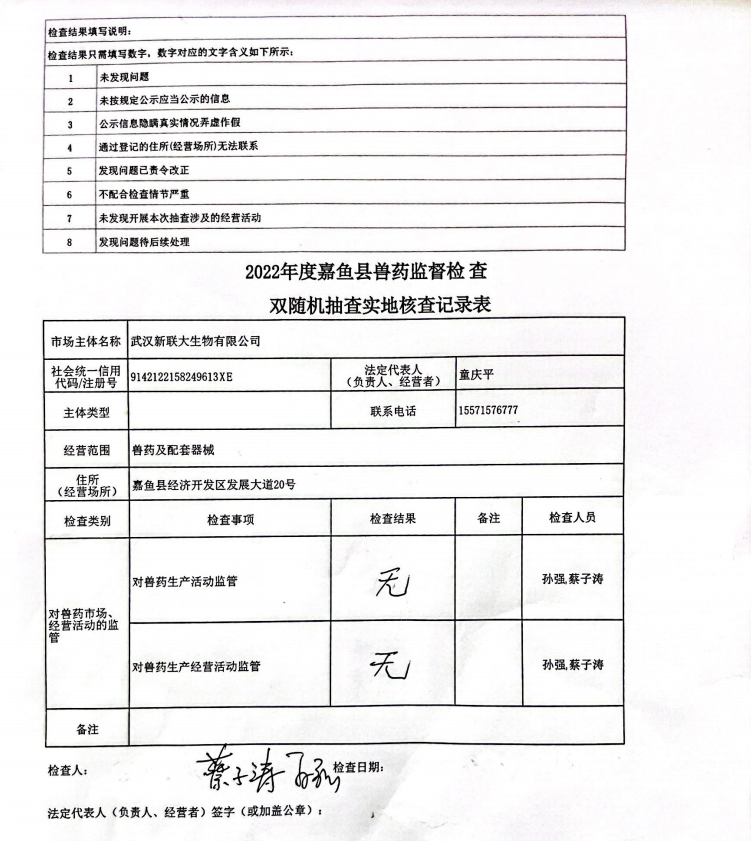 检查结果填写说明：
检查结果只需填写数字，数字对应的文字含义如下所示：
1 未发现问题
2 未按规定公示应当公示的信息
3 公示信息隐瞒真实情况弄虚作假
4 通过登记的住所(经营场所)无法联系
5 发现问题已责令改正
6 不配合检查情节严重
7 未发现开展本次抽查涉及的经营活动
8 发现问题待后续处理
2022年度嘉鱼县兽药监督检 查
双随机抽查实地核查记录表
市场主体名称 武汉新联大生物有限公司
社会统一信用代码/注册号 9142122158249613XE 法定代表人（负责人、经营者） 童庆平
主体类型 联系电话 15571576777
经营范围 兽药及配套器械
住所（经营场所） 嘉鱼县经济开发区发展大道20号
检查类别 检查事项 检查结果 备注 检查人员
对兽药市场、经营活动的监管 对兽药生产活动监管 无 孙强,蔡子涛
对兽药生产经营活动监管 无 孙强,蔡子涛
备注
检查人： 蔡子涛 孙强 检查日期：
法定代表人（负责人、经营者）签字（或加盖公章）：